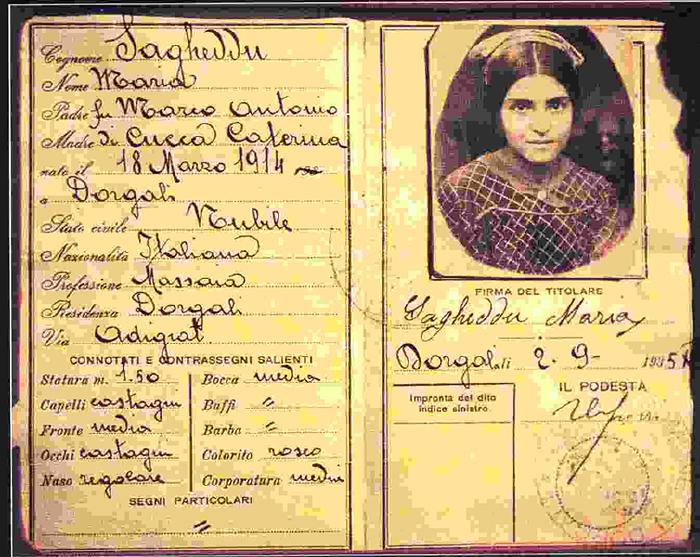 Cognome Sagheddu
Nome Maria
Padre fu Marco Antonio
Madre di Cucca Caterina
nato il 18 Marzo 1914
a Dorgali
Stato civile Nubile
Nazionalità Italiana
Professione Massaia
Residenza Dorgali
Via Adigrat
CONNOTATI E CONTRASSEGNI SALIENTI
Statura m. 1.50
Capelli castagni
Fronte media
Occhi castagni
Naso regolare
Bocca media
Baffi "
Barba "
Colorito roseo
Corporatura media
SEGNI PARTICOLARI
"
FIRMA DEL TITOLARE
Sagheddu Maria
Dorgali li 2-9-1935
IL PODESTÀ
Impronta del dito
indice sinistro